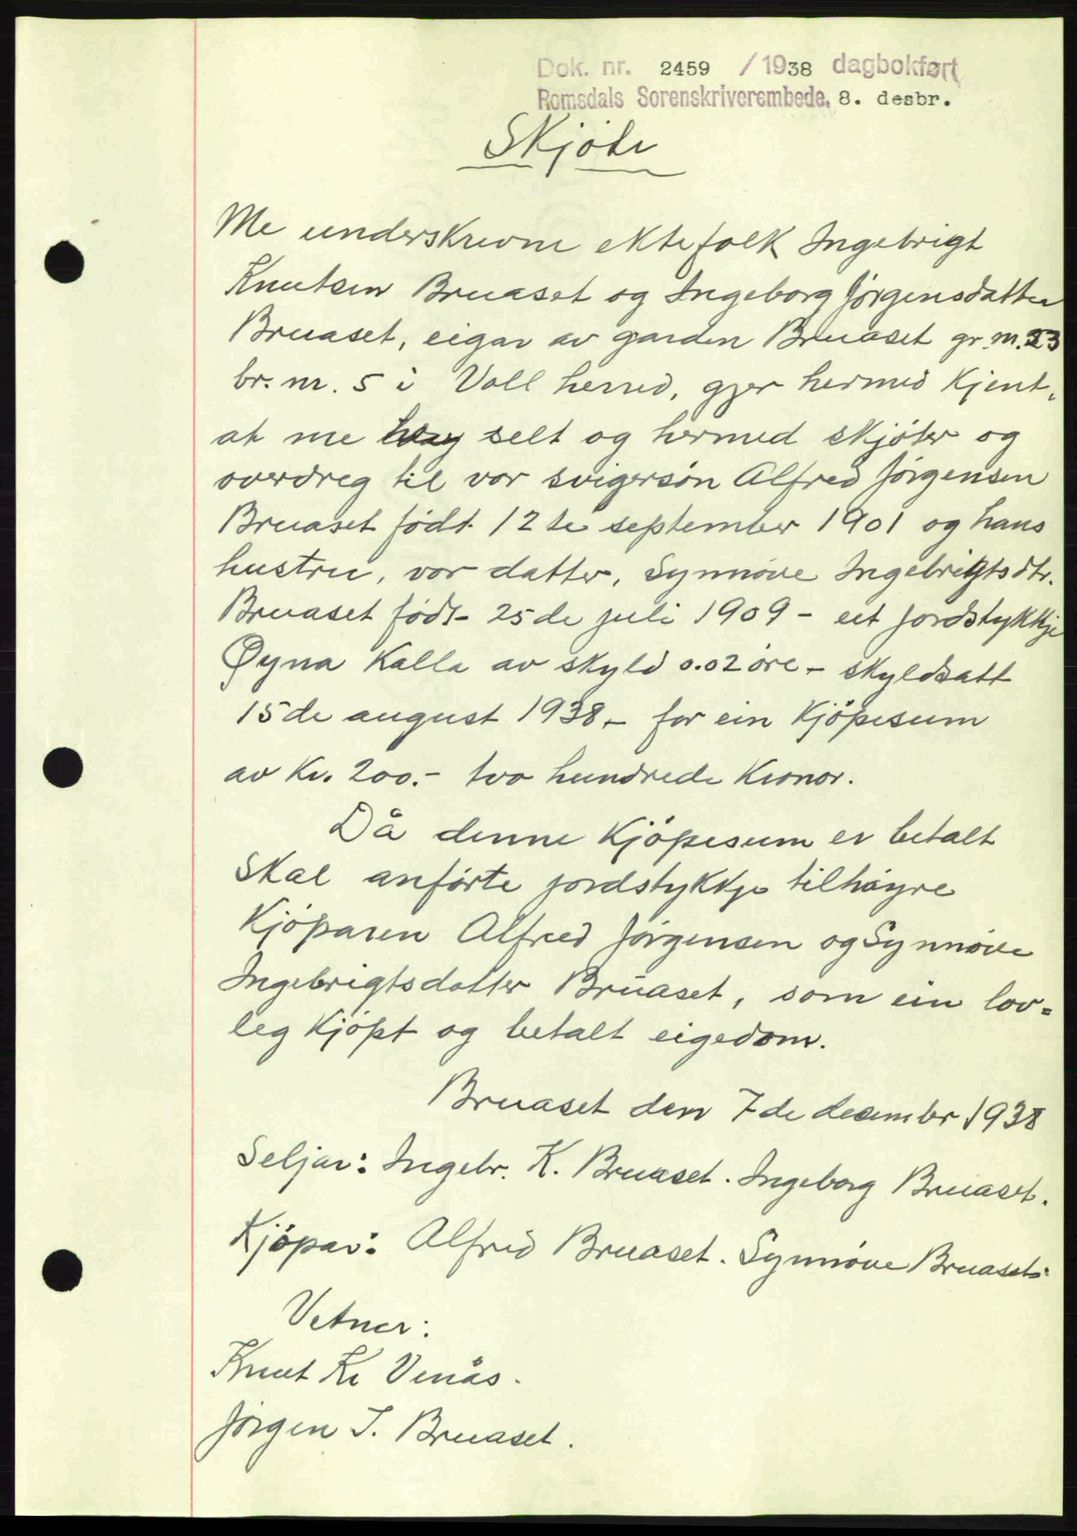 Dok. nr. 2459 /1938 dagbokført
Romsdals Sorenskriverembede, 8. desbr.
Skjöte
Me underskrivne ektefolk Ingebrigt
Knutsen Bruaset og Ingeborg Jørgensdatter
Bruaset, eigar av garden Bruaset gr. nr. 53
br. nr. 5 i Voll herred, gjer hermed kjent,
at me hev selt og hermed skjöter og
overdreg til vor svigersön Alfred Jörgensen
Bruaset födt 12te september 1901 og hans
hustru, vor datter, Synnöve Ingebrigtsdtr.
Bruaset födt 25de juli 1909 - eit jordstykkje
Øyna kalla av skyld 0.02 öre - skyldsatt
15de august 1938 - for ein kjöpesum
av Kr. 200.- tvo hundrede kronor.
Då denne kjöpesum er betalt
skal anförte jordstykkje tilhöyre
kjöparen Alfred Jörgensen og Synnöve
Ingebrigtsdatter Bruaset, som ein lov=
leg kjöpt og betalt eigedom.
Bruaset den 7de desember 1938
Seljar: Ingebr. K. Bruaset. Ingeborg Bruaset.
Kjöpar: Alfred Bruaset. Synnöve Bruaset.
Vetner:
Knut Kr Venås.
Jörgen I. Bruaset.